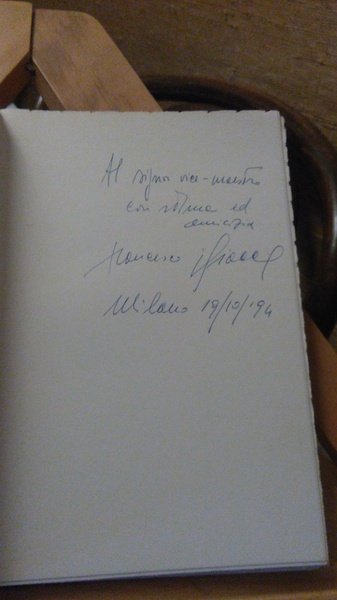 Al signor vice-maestro
con stima ed
amicizia
Francesco
Milano 19/10/'94